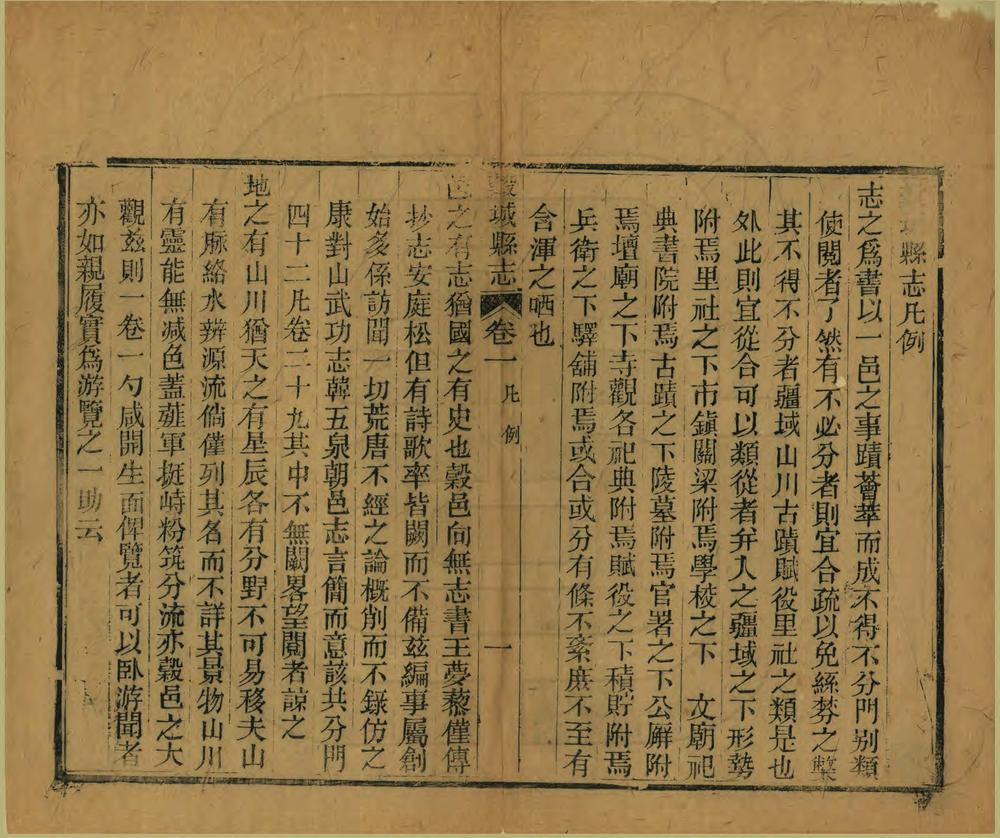 縣志凡例
志之爲書以一邑之事蹟薈萃而成不得不分門别類
使閱者了然有不必分者則宜合疏以免絲棼之獘
其不得不分者疆域山川古蹟賦役里社之類是也
外此則宜從合可以類從者弁入之疆域之下形勢
附焉里社之下市鎮關梁附焉學校之下 文廟祀
典書院附焉古蹟之下陵墓附焉官署之下公廨附
焉壇廟之下寺觀各祀典附焉賦役之下積貯附焉
兵衛之下驛舖附焉或合或分有條不紊庶不至有
含渾之哂也
榖城縣志 卷一 凡例 一
邑之有志猶國之有史也榖邑向無志書王夢藜僅傳
抄志安庭松但有詩歌率皆闕而不備兹編事屬創
始多係訪聞一切荒唐不經之論概削而不錄仿之
康對山武功志韓五泉朝邑志言簡而意該共分門
四十二凡卷二十九其中不無闕畧望閱者諒之
地之有山川猶天之有星辰各有分野不可易移夫山
有脉絡水辨源流倘僅列其名而不詳其景物山川
有靈能無减色蓋薤軍挺峙粉筑分流亦榖邑之大
觀兹則一卷一勺咸開生面俾覽者可以卧游聞者
亦如親履實爲游覽之一助云